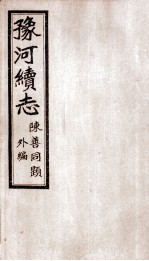 豫河續志
陳善同題
外編